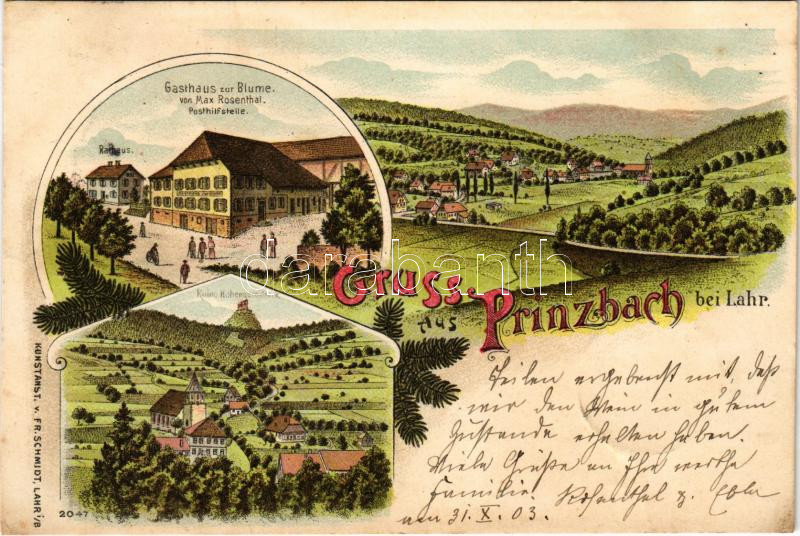 Gasthaus zur Blume.
von Max Rosenthal.
Posthilfstelle.
Rathaus.
Ruine Hohengeroldseck
Gruss
aus
Prinzbach bei Lahr.
darabanth
Teilen ergebenst mit, daß
wir den Wein in gutem
Zustande erhalten haben.
Viele Grüße an Ihre werthe
Familie. Rosenthal z.
am 31. X. 03.
KUNSTANST. v. FR. SCHMIDT, LAHR i/B
2047